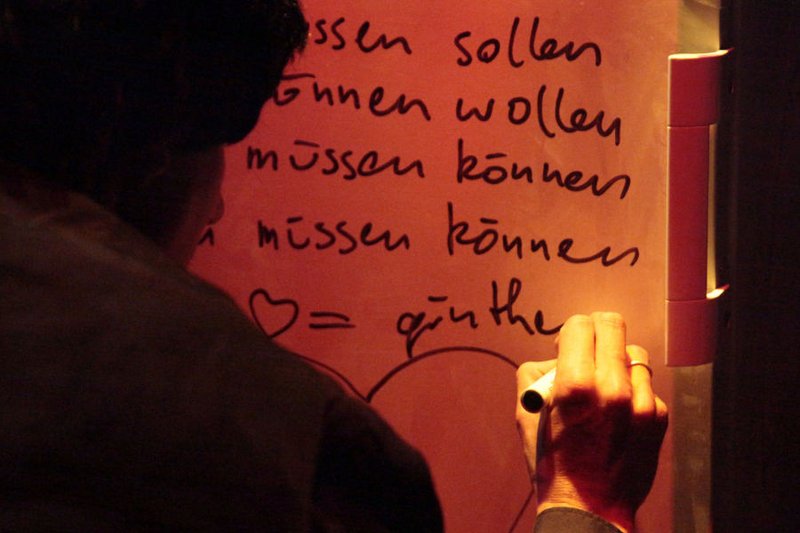 sollen
können wollen
müssen können
müssen können
♡ = günthe